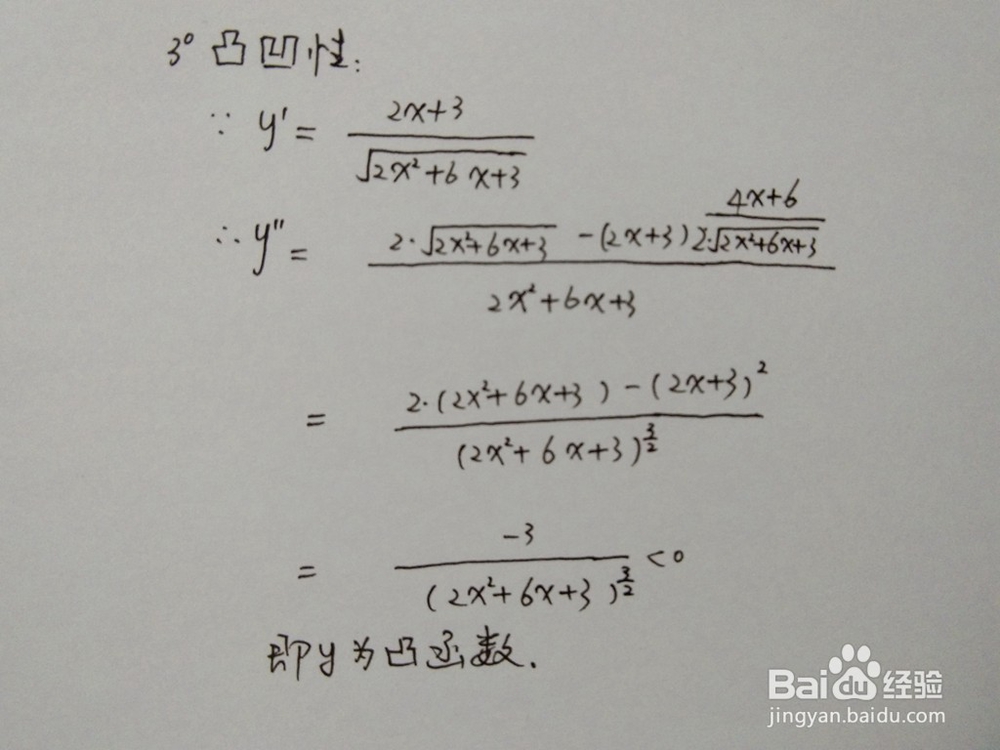 3° 凸凹性:
∵ y' = (2x+3)/√(2x²+6x+3)
∴ y'' = (2·√(2x²+6x+3) - (2x+3)(4x+6)/(2·√(2x²+6x+3)))/(2x²+6x+3)
= (2·(2x²+6x+3) - (2x+3)²)/(2x²+6x+3)^(3/2)
= -3/(2x²+6x+3)^(3/2) < 0
即y为凸函数.
Baidu 经验
jingyan.baidu.com